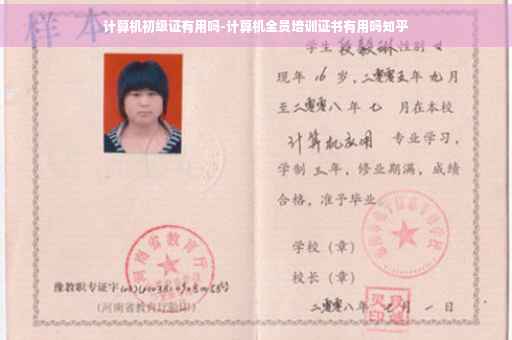 计算机初级证有用吗-计算机全员培训证书有用吗知乎
样本
学生 段毅琳 性别 女
现年 16 岁,二零零五年 九 月
至二零零八年 七 月在本校
计算机应用 专业学习,
学制 三 年,修业期满,成绩
合格,准予毕业
学校(章)
校长(章)
二零零八年 七 月 一 日
河南省教育厅
豫教职专证字
(河南省教育厅验印)